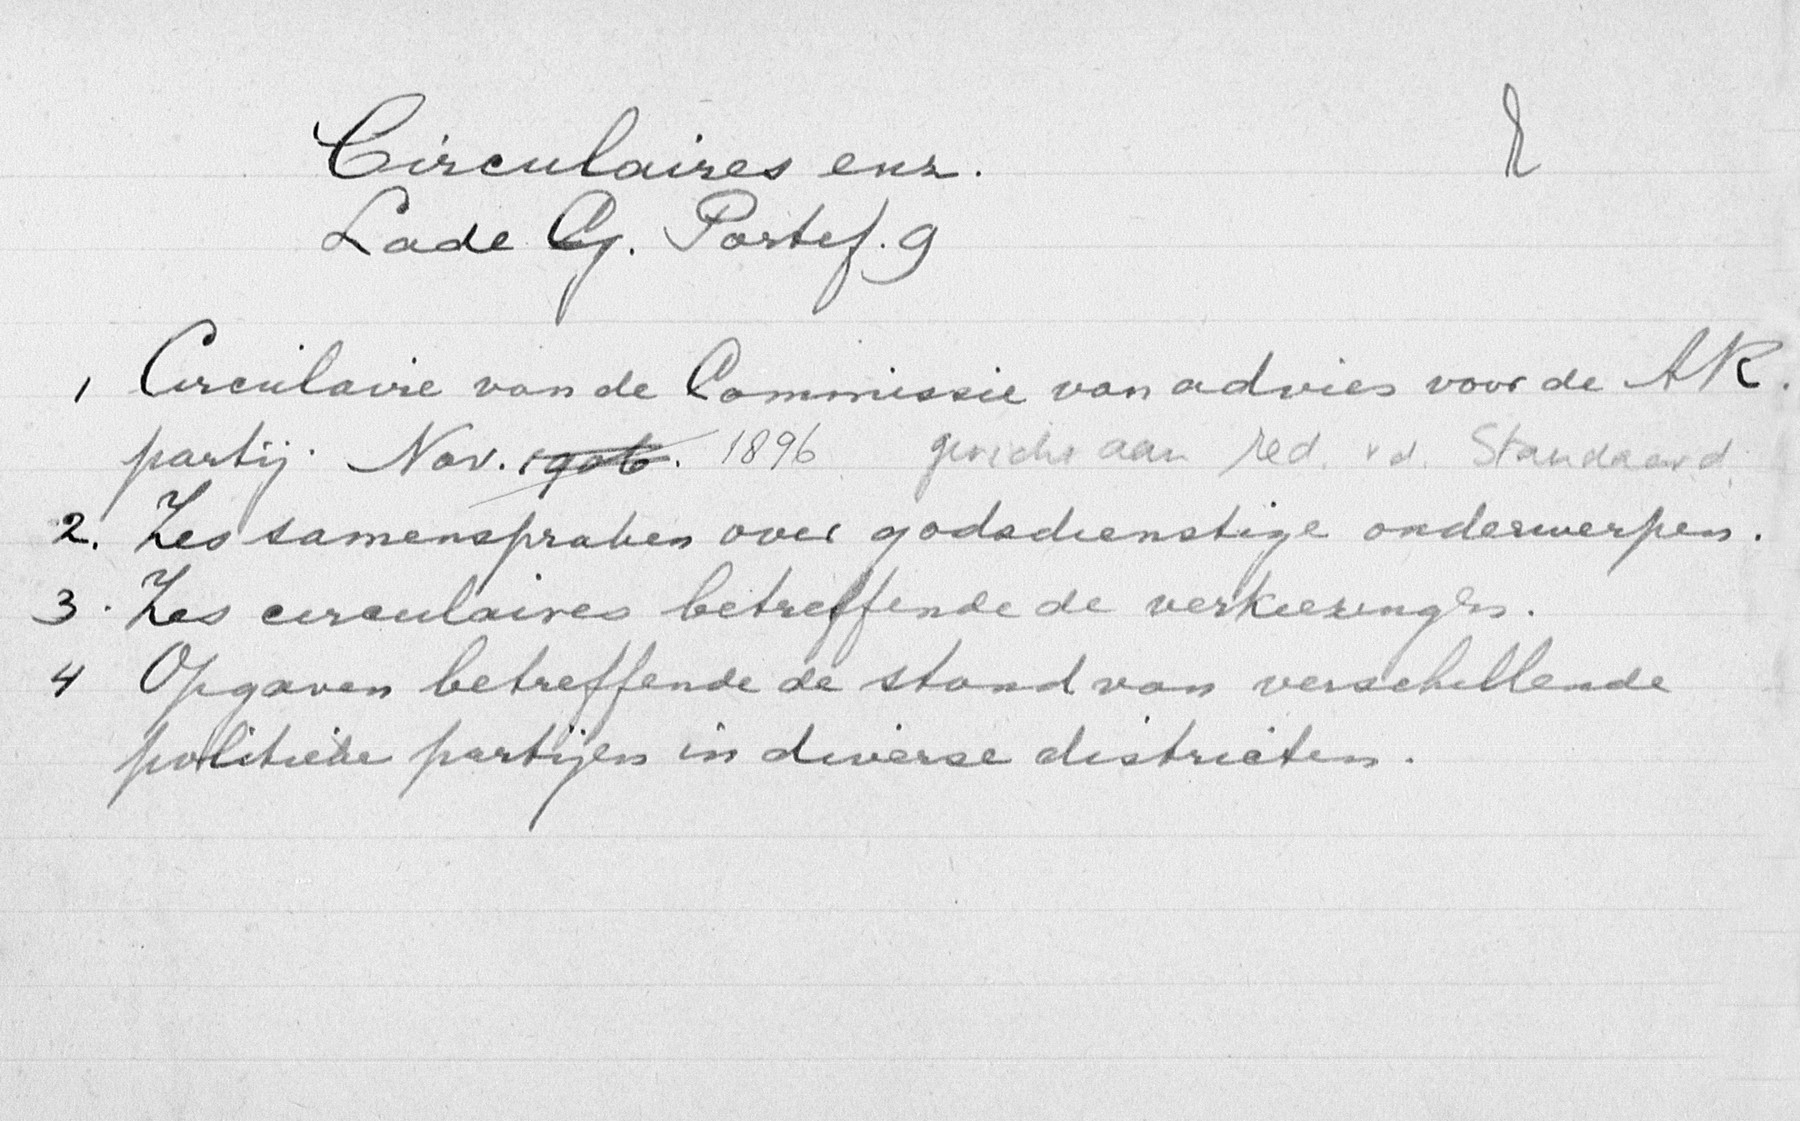 Circulaires enz.
Lade G. Portef. 9
1 Circulaire van de Commissie van advies voor de AR.
partij. Nov. 1906. 1896 gericht aan red. v.d. Standaard.
2. Zes samenspraken over godsdienstige onderwerpen.
3. Zes circulaires betreffende de verkiezingen.
4 Opgaven betreffende de stand van verschillende
politieke partijen in diverse districten.